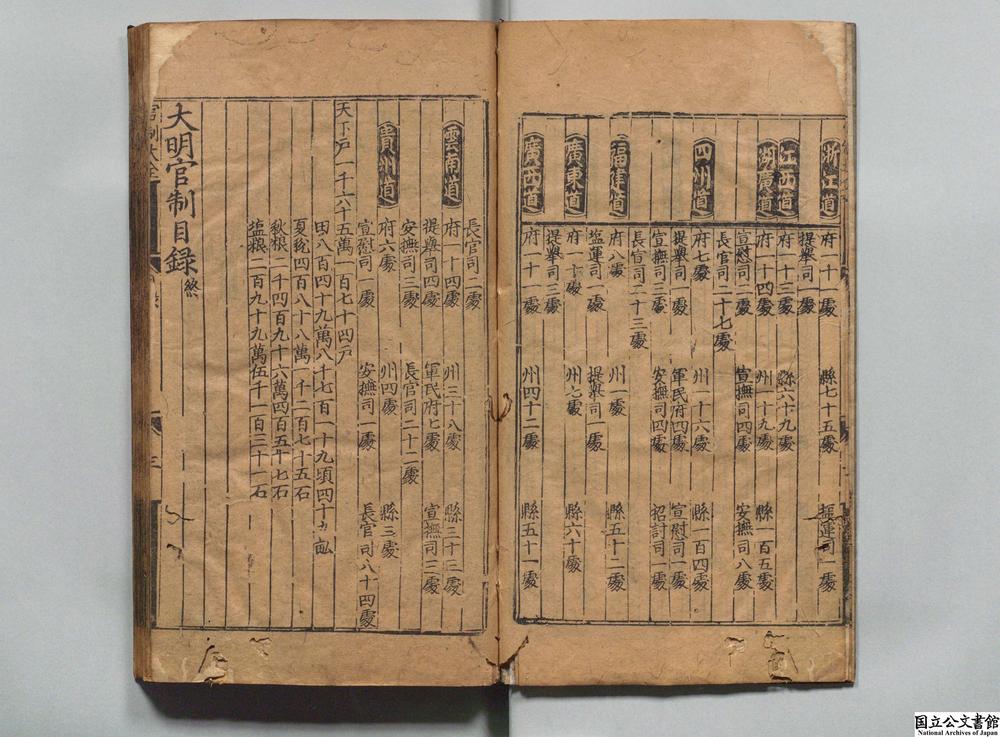 浙江道
府一十一處 縣七十五處 塩運司一處
提舉司一處
江西道
府一十三處 縣六十九處
湖廣道
府一十四處 州一十九處 縣一百五處
宣慰司二處 宣撫司四處 安撫司八處
長官司二十七處
四州道
府七處 州一十六處 縣一百四處
提舉司一處 軍民府四處 宣慰司一處
宣撫司三處 安撫司四處 招討司一處
長官司二十三處
福建道
府八處 州一處 縣五十二處
塩運司一處 提舉司一處
廣東道
府一十處 州七處 縣六十處
提舉司三處
廣西道
府一十一處 州四十二處 縣五十一處
長官司二處
雲南道
府一十四處 州三十八處 縣三十三處
提舉司四處 軍民府七處 宣撫司三處
安撫司三處 長官司二十二處
貴州道
府六處 州四處 縣三處
宣慰司一處 安撫司一處 長官司八十四處
天下戶一千六十
五萬一百七十四戶
田八百四十九萬八千七百一十九頃四十九畝
夏稅四百八十八萬一千二百七十五石
秋粮二千四百九十六萬四百五十七石
塩粮二百九十九萬伍千一百三十一石
大明官制目錄終
官制大全
三
国立公文書館
National Archives of Japan